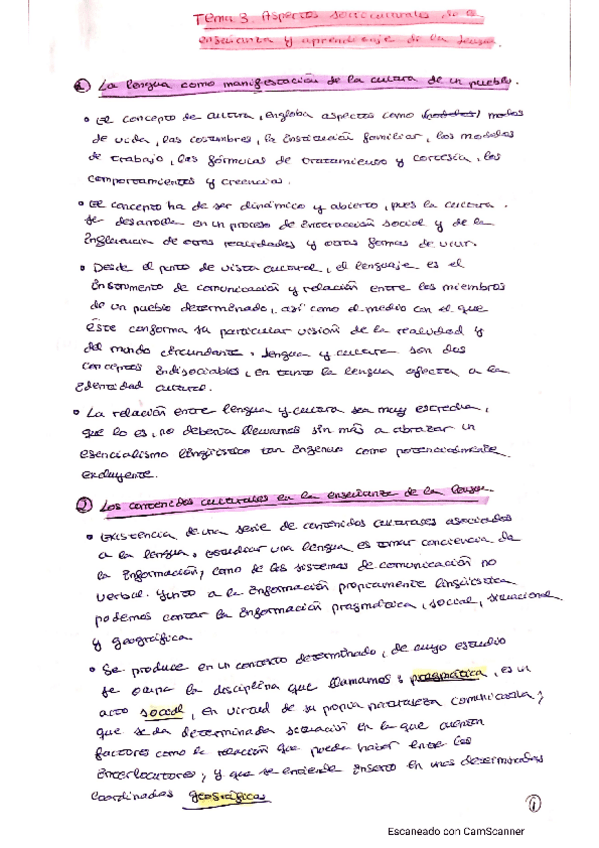 Tema 3. Aspectos socioculturales de la
enseñanza y aprendizaje de la lengua.
① La lengua como manifestación de la cultura de un pueblo.
• El concepto de cultura, engloba aspectos como (modelos) modos
de vida, las costumbres, la institución familiar, los modelos
de trabajo, las fórmulas de tratamiento y cortesía, los
comportamientos y creencias.
• El concepto ha de ser dinámico y abierto, pues la cultura
se desarrolla en un proceso de interacción social y de la
influencia de otras realidades y otras formas de vivir.
• Desde el punto de vista cultural, el lenguaje es el
instrumento de comunicación y relación entre los miembros
de un pueblo determinado, así como el medio con el que
éste conforma su particular visión de la realidad y
del mundo circundante. Lengua y cultura son dos
conceptos indisociables, en tanto la lengua afecta a la
identidad cultural.
• La relación entre lengua y cultura sea muy estrecha,
que lo es, no debería llevarnos sin más a abrazar un
esencialismo lingüístico tan ingenuo como potencialmente
excluyente.
② Los contenidos culturales en la enseñanza de la lengua.
• Existencia de una serie de contenidos culturales asociados
a la lengua. Estudiar una lengua es tomar conciencia de
la información, como de los sistemas de comunicación no
verbal. Junto a la información propiamente lingüística
podemos contar la información pragmática, social, situacional
y geográfica.
• Se produce en un contexto determinado, de cuyo estudio
se ocupa la disciplina que llamamos pragmática, es un
acto social, en virtud de su propia naturaleza comunicativa;
que se da determinada situación en la que cuentan
factores como la relación que pueda haber entre los
interlocutores; y que se entiende inserto en unas determinadas
coordinadas geográficas
①
Escaneado con CamScanner